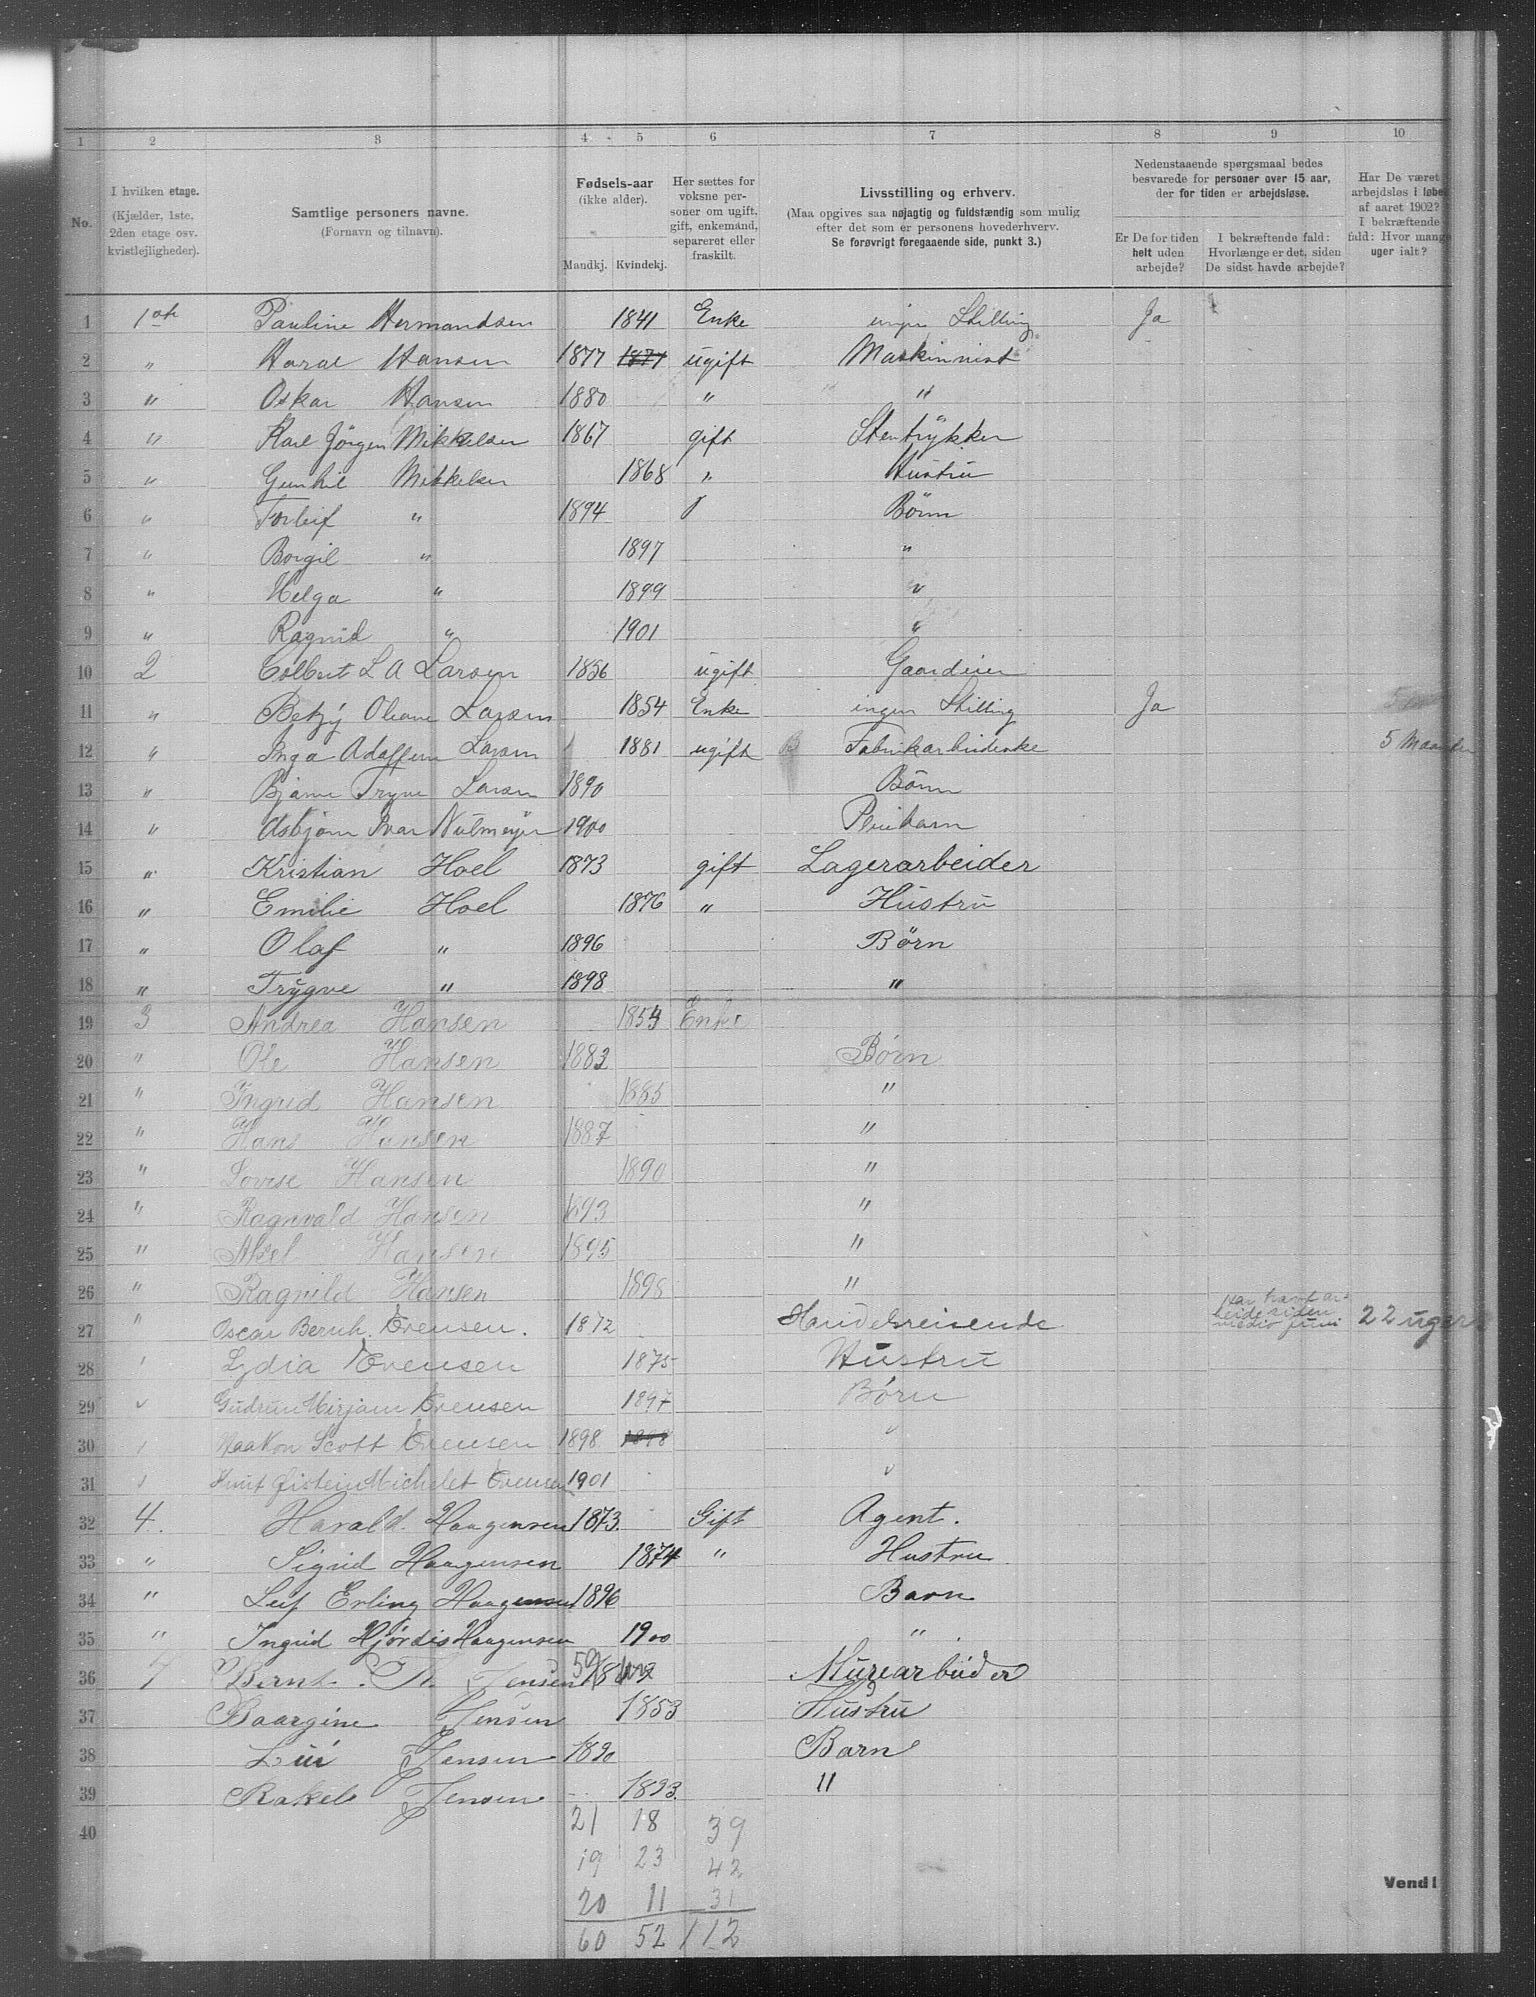 1 2 3 4 5 6 7 8 9 10
No.
I hvilken etage.
(Kjælder, 1ste,
2den etage osv.
kvistlejligheder).
Samtlige personers navne.
(Fornavn og tilnavn).
Fødsels-aar
(ikke alder).
Mandkj. Kvindekj.
Her sættes for
voksne per-
soner om ugift,
gift, enkemand,
separeret eller
fraskilt.
Livsstilling og erhverv.
(Maa opgives saa nøjagtig og fuldstændig som mulig
efter det som er personens hovederhverv.
Se forøvrigt foregaaende side, punkt 3.)
Nedenstaaende spørgsmaal bedes
besvarede for personer over 15 aar,
der for tiden er arbejdsløse.
Er De for tiden
helt uden
arbejde?
I bekræftende fald:
Hvorlænge er det, siden
De sidst havde arbejde?
Har De været
arbejdsløs i løbe
af aaret 1902?
I bekræftende
fald: Hvor mange
uger ialt?
1 1 Pauline Hermandsen 1841 Enke ingen Stilling Ja
2 " Haral Hansen 1877 1877 ugift Maskinnist
3 " Oskar Hansen 1880 " "
4 " Karl Jörgen Mikkelsen 1867 gift Stentrykker
5 " Gunhil Mikkelsen 1868 " Hustru
6 " Torleif " 1894 Börn
7 " Borgil " 1897 "
8 " Helga " 1899 "
9 " Ragnid " 1901 "
10 2 L A Larsen 1856 ugift Gaardeier
11 " Betzÿ Oliane Larsen 1854 Enke ingen Stilling Ja
12 " Inga Larsen 1881 ugift Fabrikarbeiderske 5 Maaneder
13 " Bjarne Trÿve Larsen 1890 Börn
14 " Asbjörn Ivar 1900 Pleiebarn
15 " Kristian Hoel 1873 gift Lagerarbeider
16 " Emilie Hoel 1876 " Hustru
17 " Olaf " 1896 Børn
18 " Trygve " 1898 "
19 3 Andrea Hansen 1854 Enke
20 " Ole Hansen 1883 Børn
21 " Ingrid Hansen 1885 "
22 " Hans Hansen 1887 "
23 " Lovise Hansen 1890 "
24 " Ragnvald Hansen 1893 "
25 " Aksel Hansen 1895 "
26 " Ragnild Hansen 1898 "
27 " Oscar Bernh. Evensen. 1872 Handelsreisende har havt ar-
beide siden
medio juni 22 uger
28 " Lydia Evensen 1875 Hustru
29 " Gudrun Mirjam Evensen 1897 Børn
30 " Haakon Scott Evensen 1898 1898 "
31 " Knut Øistein Michelet Evensen 1901 "
32 4. Harald Haagensen 1873. Gift Agent.
33 " Sigrid Haagensen 1874 " Hustru
34 " Leif Erling Haagensen 1896 Barn
35 " Ingrid Hjørdis Haagensen 1900 "
36 Bernt. Th. Jensen Murearbeider
37 Jensen 1853 Hustru
38 Jensen 1890 Barn
39 Rakel Jensen 1893. "
40
21 18 39
19 23 42
20 11 31
60 52 112
Vend!